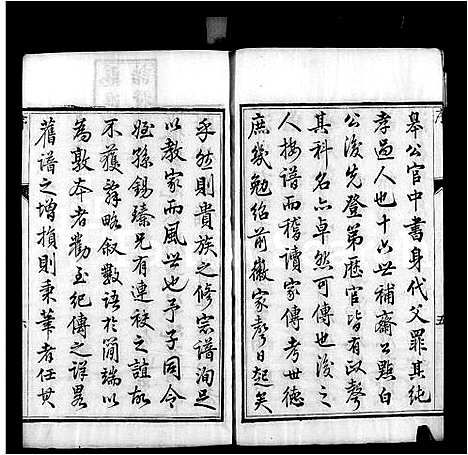 舉公官中書身代父罪其純
孝過人也十六世補齋公點白
公後先登第歷官皆有政聲
其科名亦卓然可傳也後之
人按譜而稽讀家傳考世德
庶幾勉紹前徽家聲日起矣
乎然則貴族之修宗譜洵足
以教家而風世也予子同令
姪孫錫臻兄有連袂之誼故
不獲辭略叙數語於簡端以
為敦本者勸至紀傳之詳畧
舊譜之增損則秉筆者任其